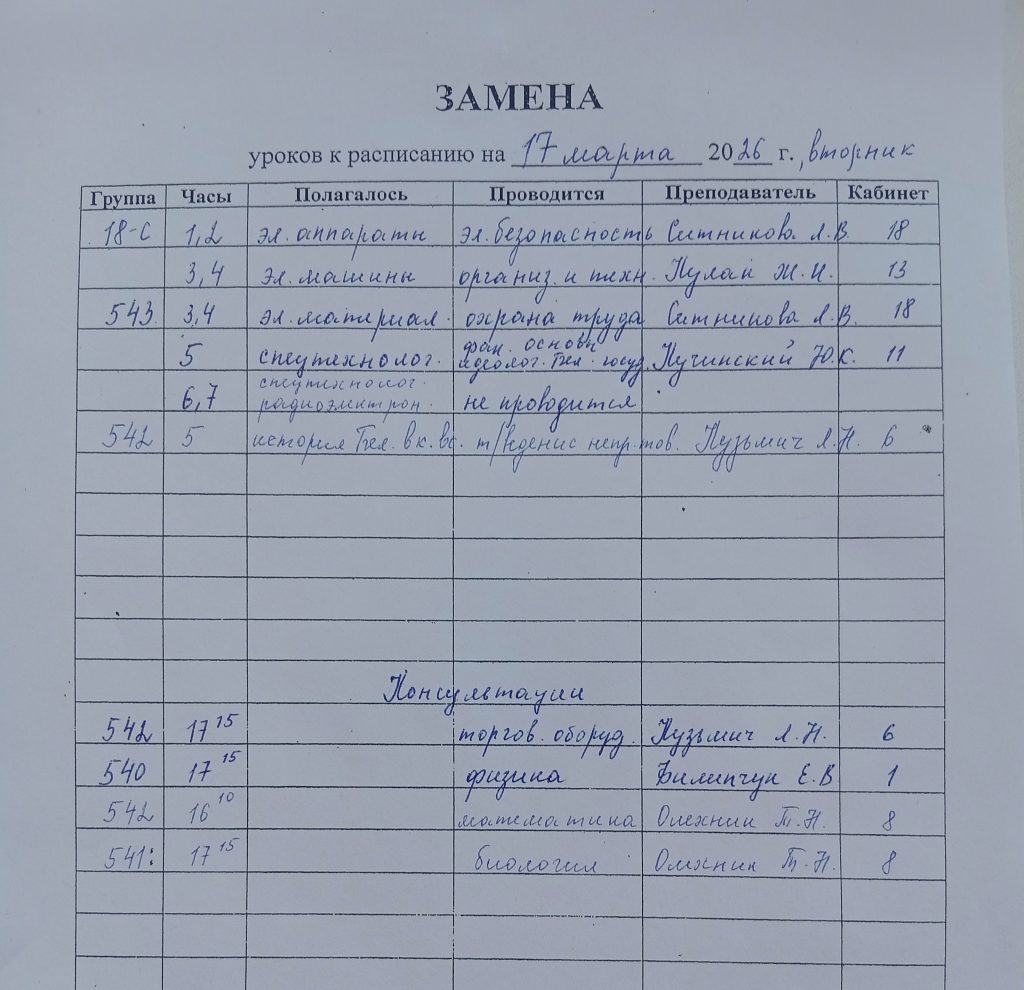 ЗАМЕНА
уроков к расписанию на 17 марта 2026 г., вторник
Группа Часы Полагалось Проводится Преподаватель Кабинет
18-С 1,2 эл. аппараты эл. безопасность Ситникова Л.В. 18
3,4 эл. машины организ. и техн. Кулак Ж.И. 13
543 3,4 эл. материал. охрана труда Ситникова Л.В. 18
5 спецтехнолог. фак. основы идеолог. Бел. госуд. Кучинский Ю.К. 11
6,7 спецтехнолог. радиоэлектрон. не проводится
542 5 история Бел. в к. вс. т/ведение непр. тов. Кузьмич Л.Н. 6
Консультации
542 17 15 торгов. оборуд. Кузьмич Л.Н. 6
540 17 15 физика Билипчук Е.В 1
542 16 10 математика Олехник Т.Н. 8
541: 17 15 биология Олехник Т.Н. 8